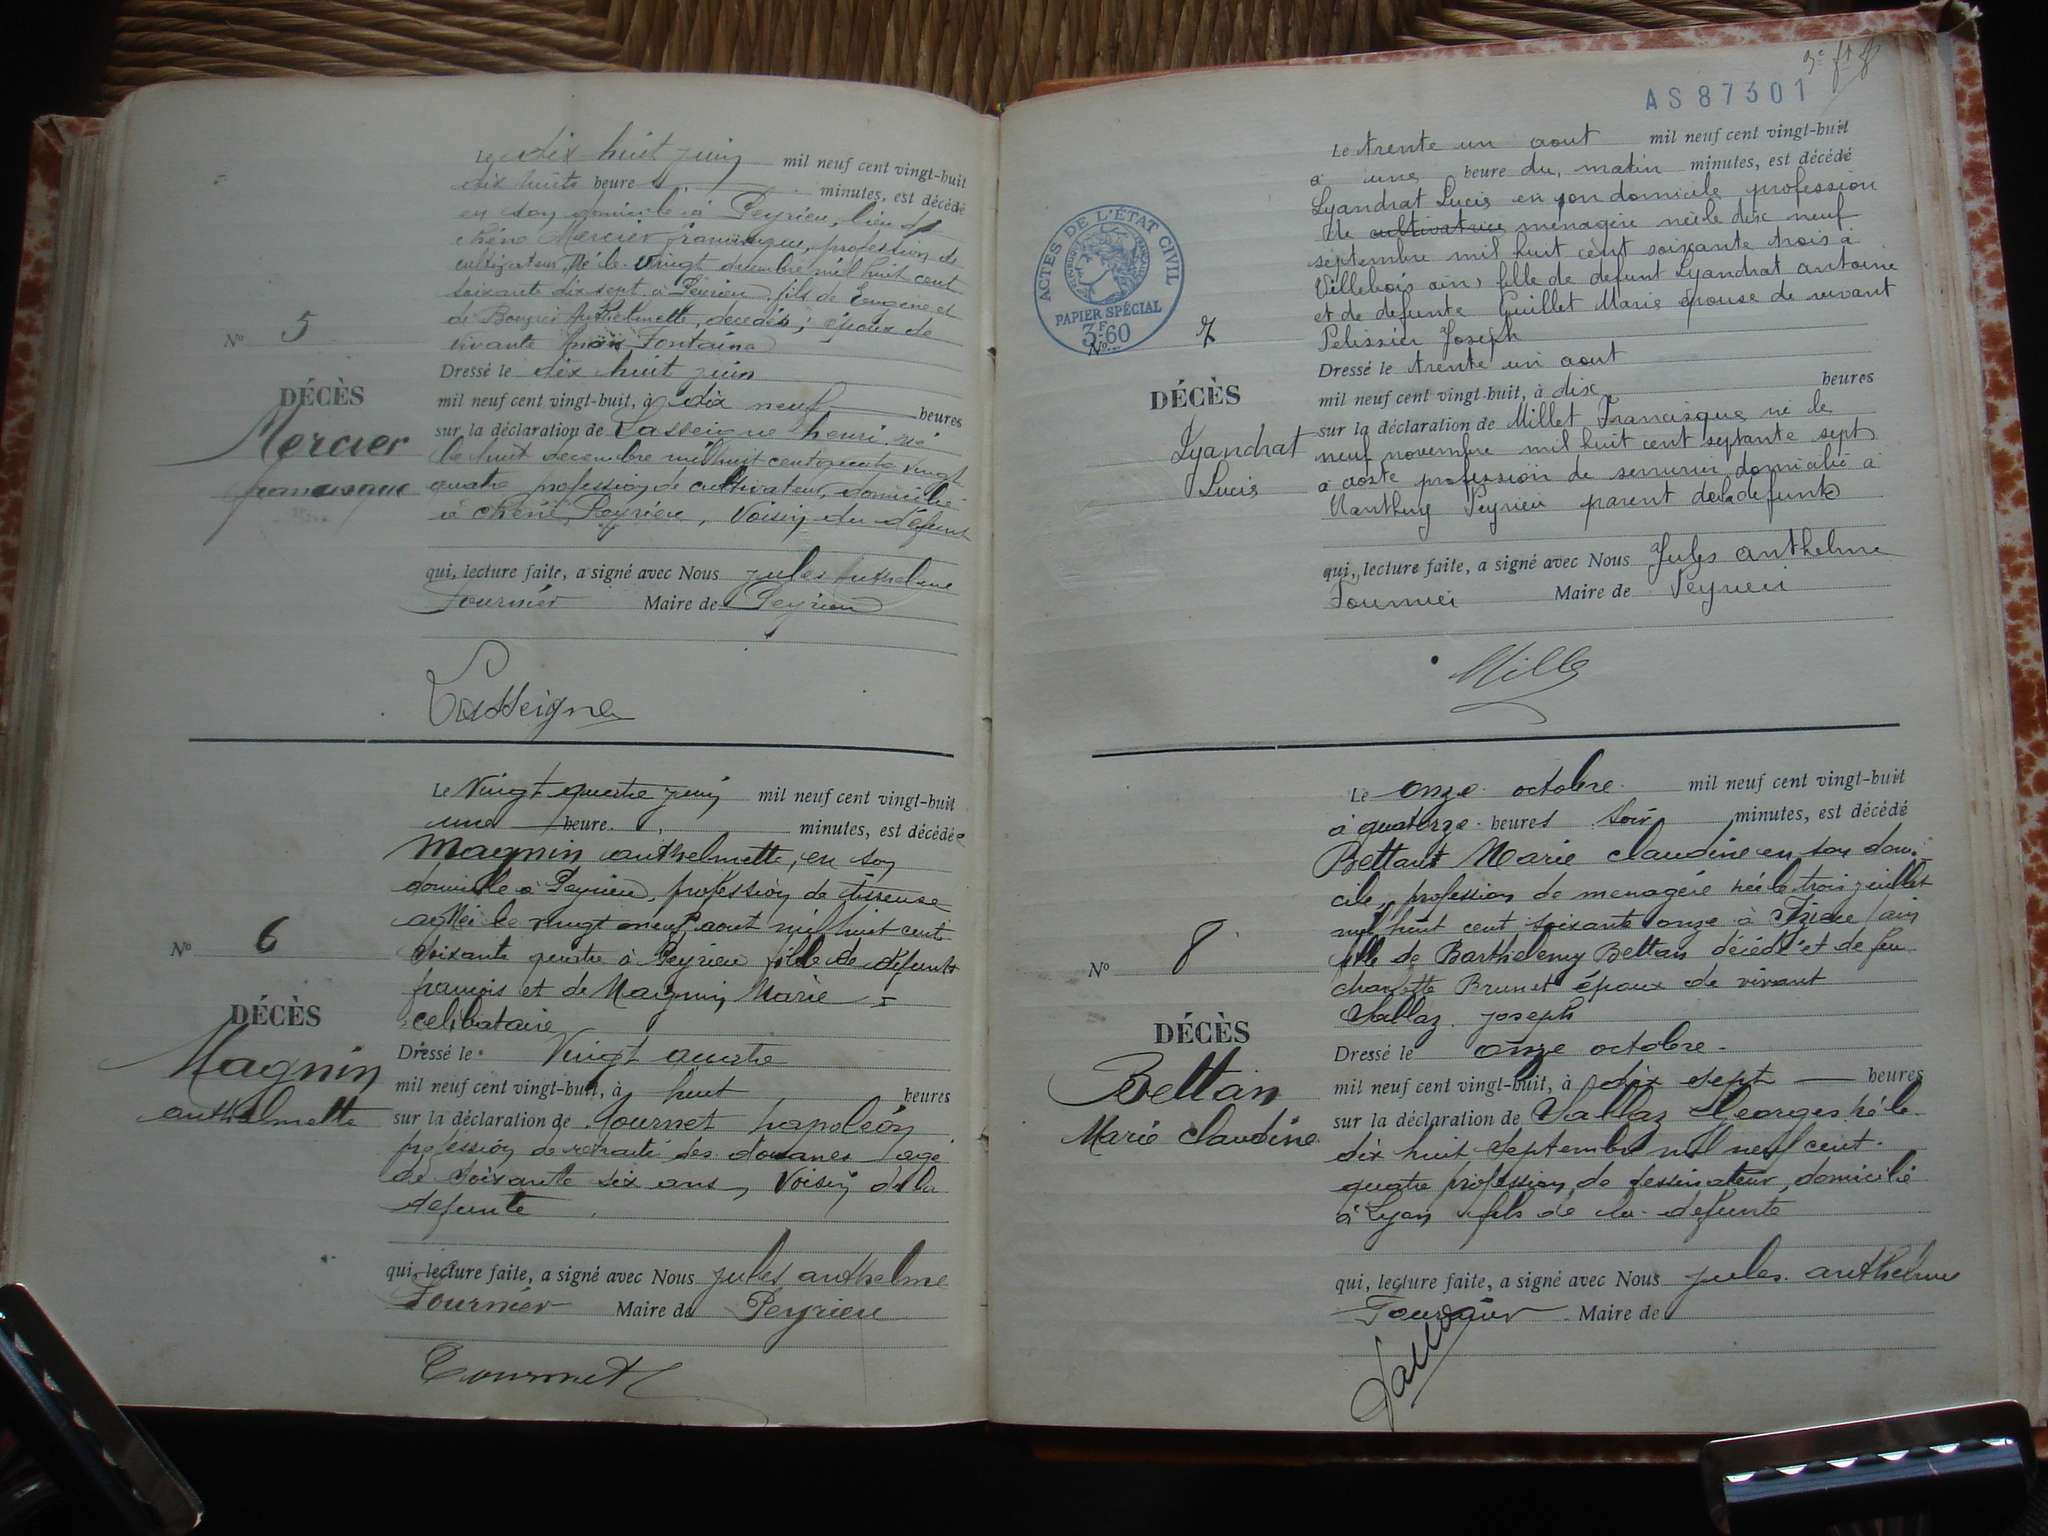 Le dix huit juin mil neuf cent vingt-huit
dix huit heures minutes, est décédé
en son domicile à Peyrieu, lieu dit
chêne Mercier francisque, profession de
cultivateur, Né le vingt decembre mil huit cent
soixante dix sept à Peyrieu fils de Eugène et
de Anthelmette, décédés, époux de
vivante Fontaine
N° 5
Dressé le dix huit juin
DÉCÈS
mil neuf cent vingt-huit, à dix neuf heures
Mercier
francisque
sur la déclaration de Lasseigne henri, né
le huit decembre mil huit cent quatre vingt
quatre profession de cultivateur, domicilié
à chêne Peyrieu, Voisin du défunt
qui, lecture faite, a signé avec Nous jules Anthelme
Fournier Maire de Peyrieu
Lasseigne
Le Vingt quatre juin mil neuf cent vingt-huit
une heure minutes, est décédée
Magnin anthelmette, en son
domicile à Peyrieu, profession de tisseuse
Née le vingt neuf aout mil huit cent
soixante quatre à Peyrieu fille de défunts
françois et de Magnin Marie
celibataire
N° 6
DÉCÈS
Magnin
anthelmette
Dressé le Vingt quatre
mil neuf cent vingt-huit, à huit heures
sur la déclaration de Tournet napoléon
profession de retraité des douanes agé
de soixante six ans, Voisin de la
defunte
qui, lecture faite, a signé avec Nous jules anthelme
Fournier Maire de Peyrieu
Tournet
AS87301
Le trente un aout mil neuf cent vingt-huit
à une heure du matin minutes, est décédé
Lyandrat Lucie en son domicile profession
de cultivatrice menagère née le dix neuf
septembre mil huit cent soixante trois à
Villebois ain, fille de defunt Lyandrat antoine
et de defunte Guillet Marie épouse de vivant
Pelissier Joseph
ACTES DE L'ÉTAT CIVIL
PAPIER SPÉCIAL
3F60
N° 7
Dressé le trente un aout
DÉCÈS
Lyandrat
Lucie
mil neuf cent vingt-huit, à dix heures
sur la déclaration de Millet Francisque né le
neuf novembre mil huit cent septante sept
a aoste profession de serrurier domicilié à
Nanthuy Peyrieu parent de la defunte
qui, lecture faite, a signé avec Nous Jules anthelme
Fournier Maire de Peyrieu
Millet
Le onze octobre mil neuf cent vingt-huit
à quatorze heures soir minutes, est décédé
Bettant Marie claudine en son domi-
cile, profession de menagère née le trois juillet
mil huit cent soixante onze à Izieu ain
fille de Barthelemy Bettan décédé et de feu
charlotte Brunet épaux de vivant
Sallaz joseph
N° 8
DÉCÈS
Bettan
Marie claudine
Dressé le onze octobre
mil neuf cent vingt-huit, à dix sept heures
sur la déclaration de Sallaz Georges né le
dix huit septembre mil neuf cent
quatre profession de dessinateur, domicilié
à Lyon fils de la defunte
qui, lecture faite, a signé avec Nous jules anthelme
Fournier Maire de
Sallaz